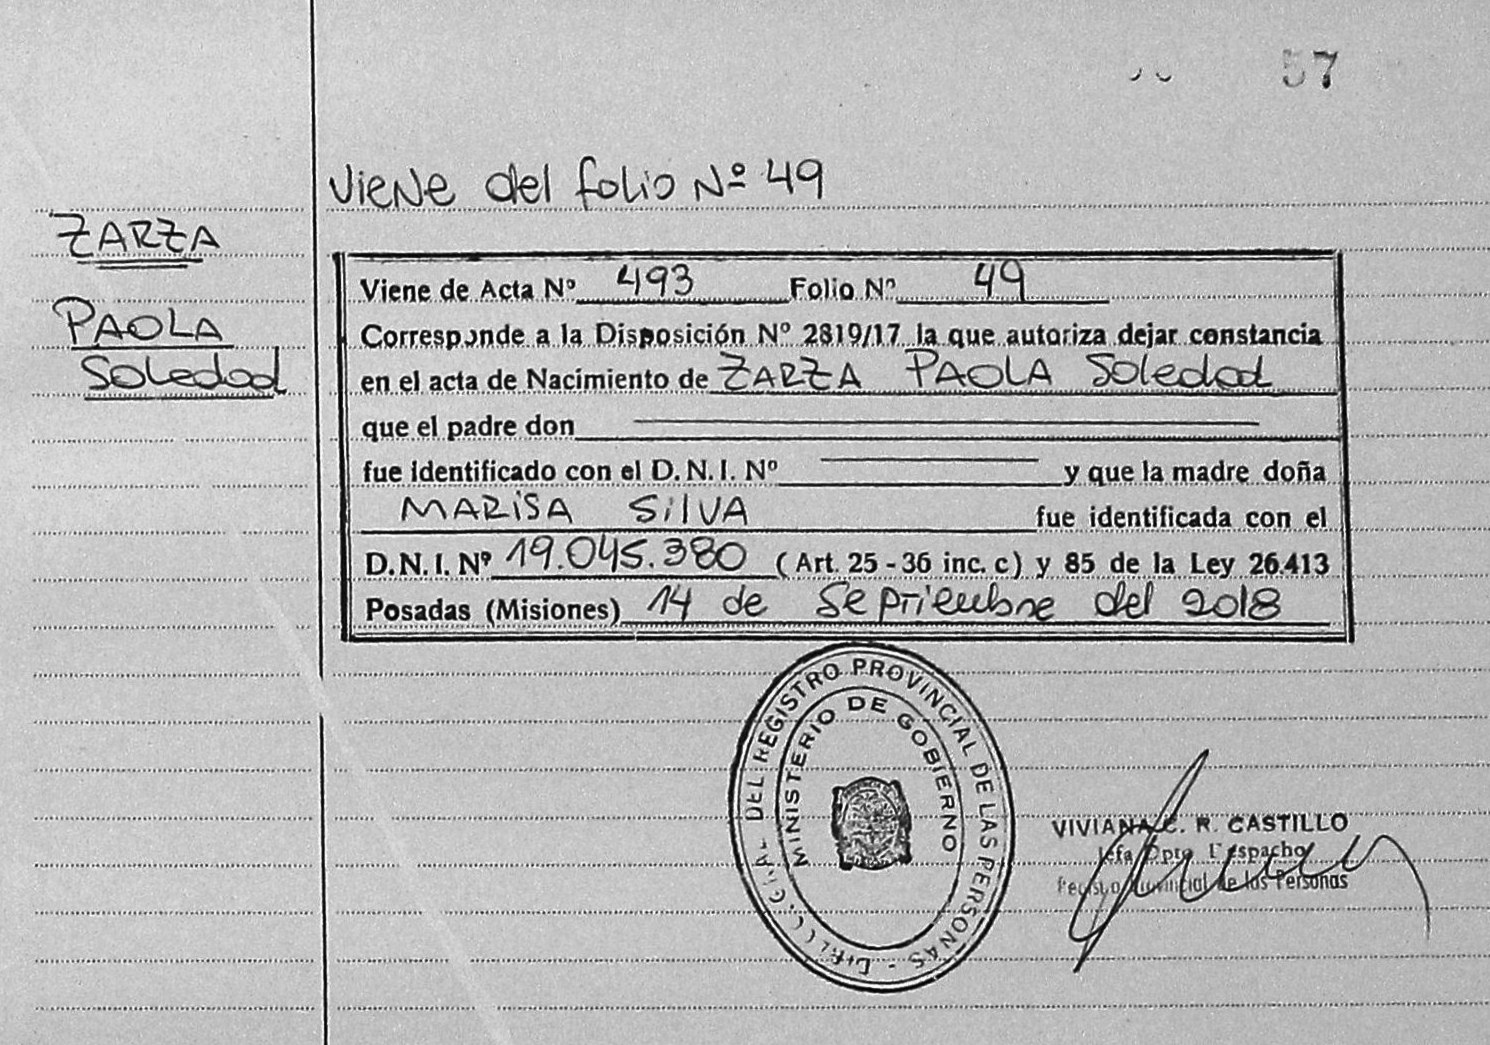 57
Viene del folio Nº 49
ZARZA
PAOLA
Soledad
Viene de Acta Nº 493 Folio Nº 49
Corresponde a la Disposición Nº 2819/17 la que autoriza dejar constancia
en el acta de Nacimiento de ZARZA PAOLA Soledad
que el padre don
fue identificado con el D.N.I. Nº y que la madre doña
MARISA SilVA fue identificada con el
D.N.I. Nº 19.045.380 (Art. 25 - 36 inc. c) y 85 de la Ley 26.413
Posadas (Misiones) 14 de Septiembre del 2018
DEL REGISTRO PROVINCIAL DE LAS PERSONAS
MINISTERIO DE GOBIERNO
VIVIANA C. R. CASTILLO
Jefa Dpto Despacho
Registro Provincial de las Personas